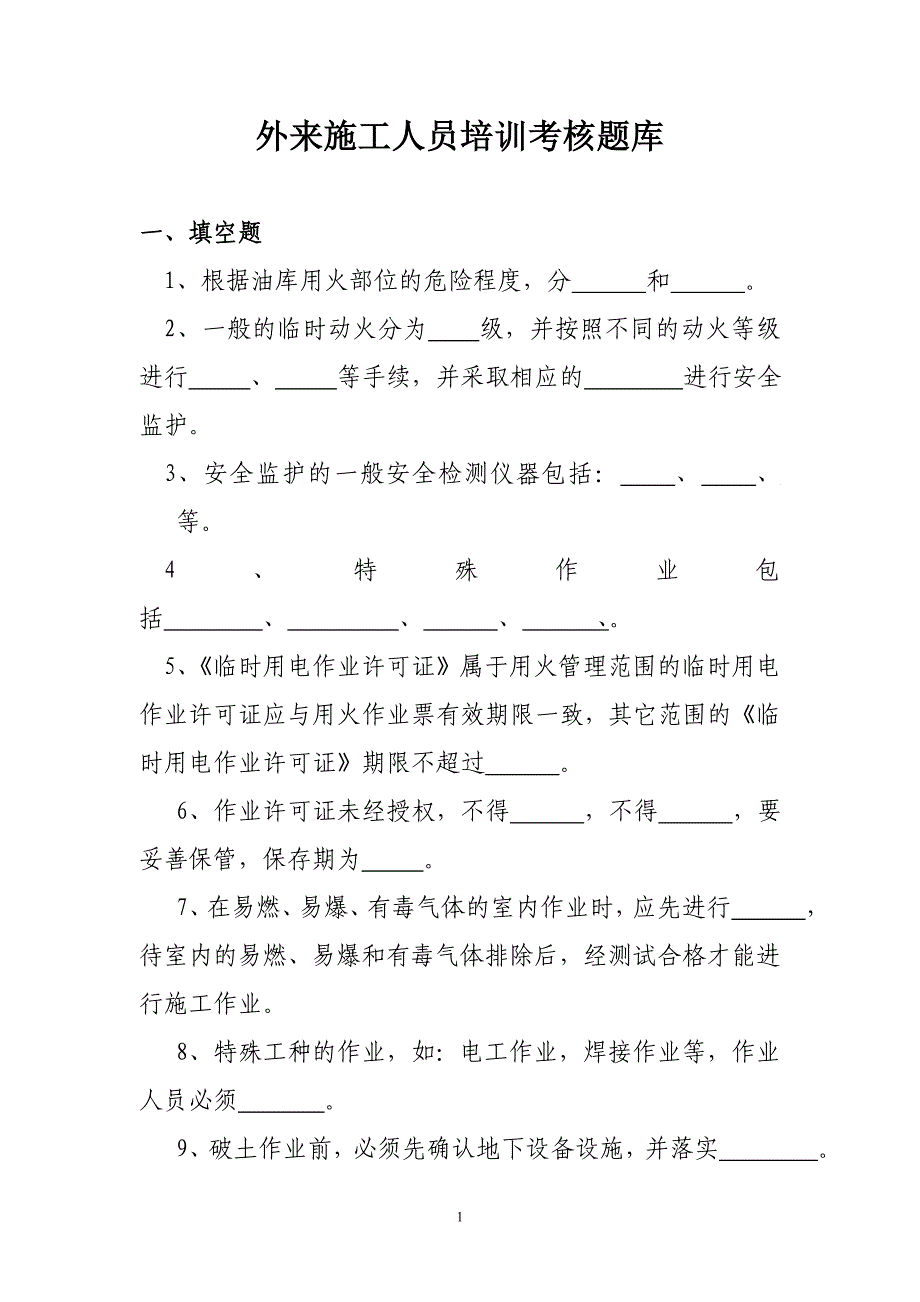 外来施工人员培训考核题库
一、填空题
1、根据油库用火部位的危险程度，分______和______。
2、一般的临时动火分为____级，并按照不同的动火等级
进行_____、_____等手续，并采取相应的________进行安全
监护。
3、安全监护的一般安全检测仪器包括：_____、_____、
等。
4、特殊作业包
括________、_________、______、______、。
5、《临时用电作业许可证》属于用火管理范围的临时用电
作业许可证应与用火作业票有效期限一致，其它范围的《临
时用电作业许可证》期限不超过______。
6、作业许可证未经授权，不得______，不得______，要
妥善保管，保存期为_____。
7、在易燃、易爆、有毒气体的室内作业时，应先进行______，
待室内的易燃、易爆和有毒气体排除后，经测试合格才能进
行施工作业。
8、特殊工种的作业，如：电工作业，焊接作业等，作业
人员必须_______。
9、破土作业前，必须先确认地下设备设施，并落实________。
1